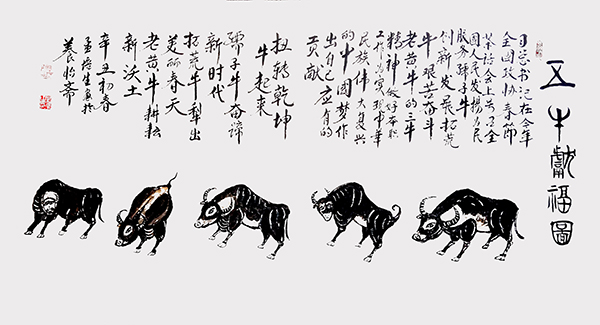 五牛獻福圖
习总书记在今年
全国政协春节
茶话会上号召全
国人民发扬为民
服务孺子牛
创新发展拓荒
牛艰苦奋斗
老黄牛的三牛
精神做好本职
工作为实现中华
民族伟大复兴
的中国梦作
出自己应有的
贡献
扭转乾坤
牛起来
孺子牛奋蹄
新时代
拓荒牛犁出
美丽春天
老黄牛耕耘
新沃土
辛丑初春
生画於
养怡斋